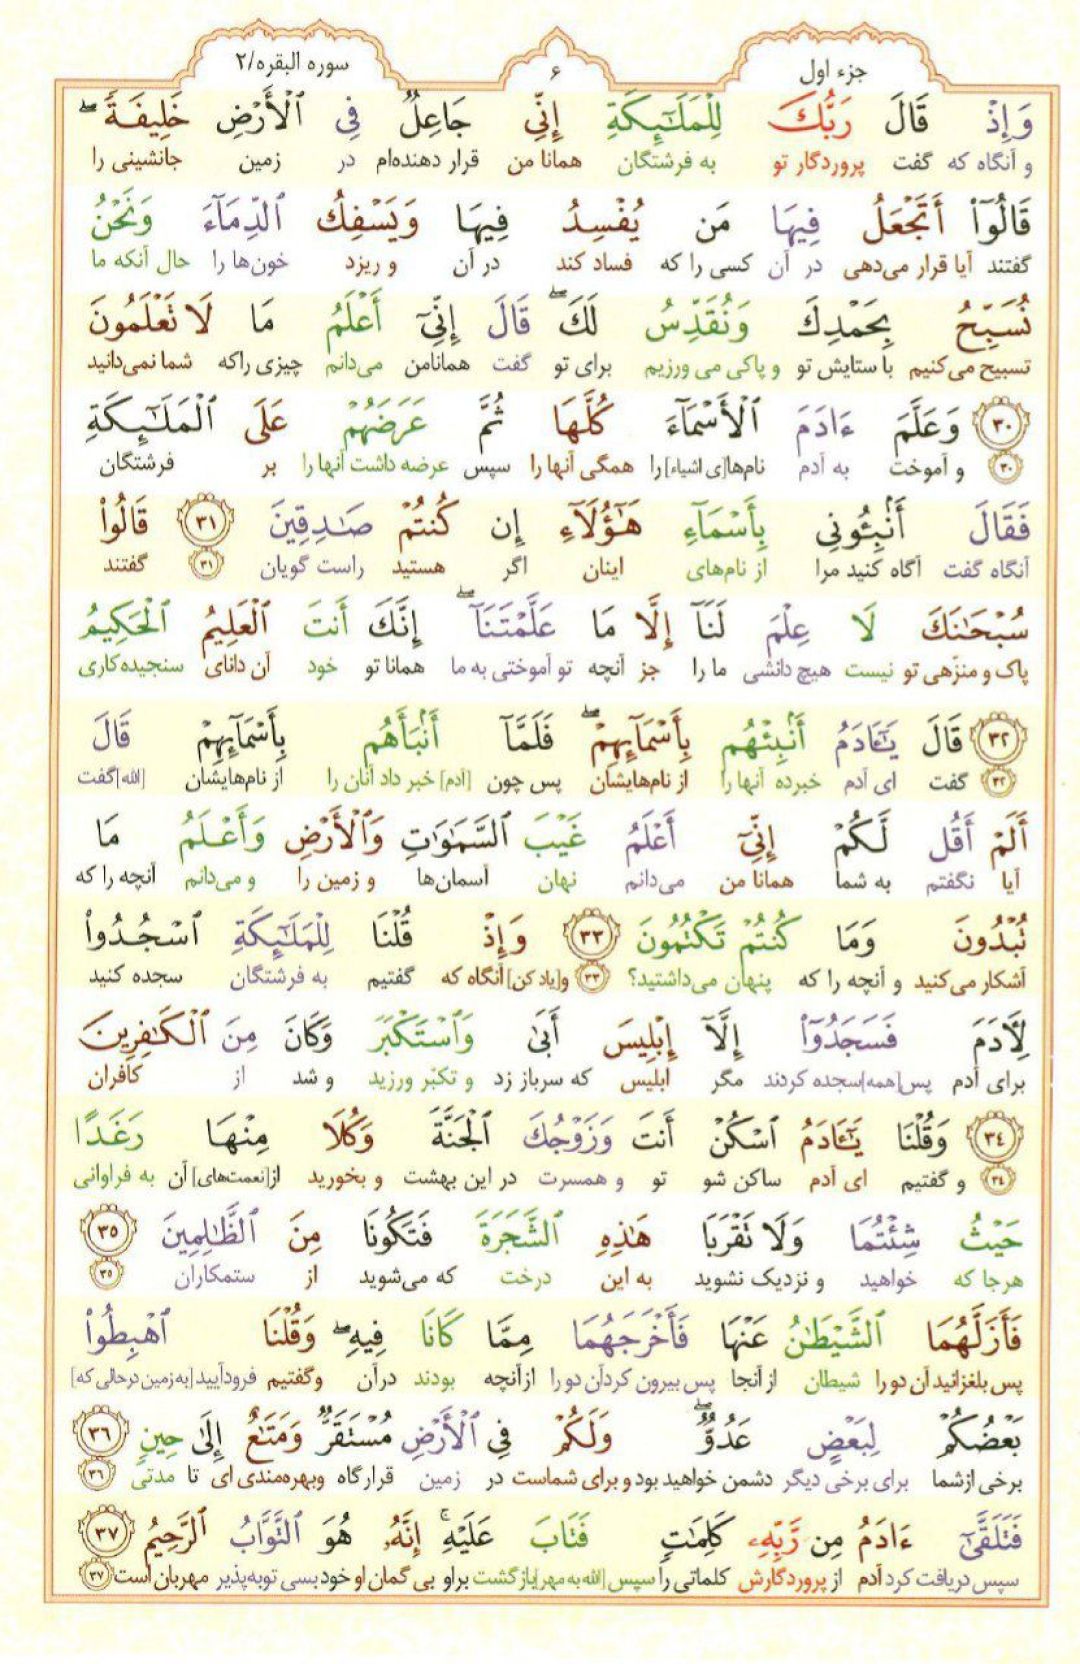 جزء اول
۶
سوره البقره/۲
وَإِذْ قَالَ رَبُّكَ لِلْمَلَـٰٓئِكَةِ إِنِّى جَاعِلٌ فِى ٱلْأَرْضِ خَلِيفَةً ۖ
و آنگاه که گفت پروردگار تو به فرشتگان همانا من قرار دهنده‌ام در زمین جانشینی را
قَالُوٓا۟ أَتَجْعَلُ فِيهَا مَن يُفْسِدُ فِيهَا وَيَسْفِكُ ٱلدِّمَآءَ وَنَحْنُ
گفتند آیا قرار می‌دهی در آن کسی را که فساد کند در آن و ریزد خون‌ها را حال آنکه ما
نُسَبِّحُ بِحَمْدِكَ وَنُقَدِّسُ لَكَ ۖ قَالَ إِنِّىٓ أَعْلَمُ مَا لَا تَعْلَمُونَ
تسبیح می‌کنیم با ستایش تو و پاکی می ورزیم برای تو گفت همانامن می‌دانم چیزی راکه شما نمی‌دانید
۳۰ وَعَلَّمَ ءَادَمَ ٱلْأَسْمَآءَ كُلَّهَا ثُمَّ عَرَضَهُمْ عَلَى ٱلْمَلَـٰٓئِكَةِ
۳۰ و آموخت به آدم نام‌ها[ی اشیاء] را همگی آنها را سپس عرضه داشت آنها را بر فرشتگان
فَقَالَ أَنۢبِـُٔونِى بِأَسْمَآءِ هَـٰٓؤُلَآءِ إِن كُنتُمْ صَـٰدِقِينَ ۳۱ قَالُوا۟
آنگاه گفت آگاه کنید مرا از نام‌های اینان اگر هستید راست گویان ۳۱ گفتند
سُبْحَـٰنَكَ لَا عِلْمَ لَنَآ إِلَّا مَا عَلَّمْتَنَآ ۖ إِنَّكَ أَنتَ ٱلْعَلِيمُ ٱلْحَكِيمُ
پاک و منزّهی تو نیست هیچ دانشی ما را جز آنچه تو آموختی به ما همانا تو خود آن دانای سنجیده‌کاری
۳۲ قَالَ يَـٰٓـَٔادَمُ أَنۢبِئْهُم بِأَسْمَآئِهِمْ ۖ فَلَمَّآ أَنۢبَأَهُم بِأَسْمَآئِهِمْ قَالَ
۳۲ گفت ای آدم خبرده آنها را از نام‌هایشان پس چون [آدم] خبر داد آنان را از نام‌هایشان [الله] گفت
أَلَمْ أَقُل لَّكُمْ إِنِّىٓ أَعْلَمُ غَيْبَ ٱلسَّمَـٰوَٰتِ وَٱلْأَرْضِ وَأَعْلَمُ مَا
آیا نگفتم به شما همانا من می‌دانم نهان آسمان‌ها و زمین را و می‌دانم آنچه را که
تُبْدُونَ وَمَا كُنتُمْ تَكْتُمُونَ ۳۳ وَإِذْ قُلْنَا لِلْمَلَـٰٓئِكَةِ ٱسْجُدُوا۟
آشکار می‌کنید و آنچه را که پنهان می‌داشتید؟ ۳۳ و[یاد کن] آنگاه که گفتیم به فرشتگان سجده کنید
لِـَٔادَمَ فَسَجَدُوٓا۟ إِلَّآ إِبْلِيسَ أَبَىٰ وَٱسْتَكْبَرَ وَكَانَ مِنَ ٱلْكَـٰفِرِينَ
برای آدم پس[همه]سجده کردند مگر ابلیس که سرباز زد و تکبّر ورزید و شد از کافران
۳۴ وَقُلْنَا يَـٰٓـَٔادَمُ ٱسْكُنْ أَنتَ وَزَوْجُكَ ٱلْجَنَّةَ وَكُلَا مِنْهَا رَغَدًا
۳۴ و گفتیم ای آدم ساکن شو تو و همسرت در این بهشت و بخورید از[نعمت‌های] آن به فراوانی
حَيْثُ شِئْتُمَا وَلَا تَقْرَبَا هَـٰذِهِ ٱلشَّجَرَةَ فَتَكُونَا مِنَ ٱلظَّـٰلِمِينَ ۳۵
هرجا که خواهید و نزدیک نشوید به این درخت که می‌شوید از ستمکاران ۳۵
فَأَزَلَّهُمَا ٱلشَّيْطَـٰنُ عَنْهَا فَأَخْرَجَهُمَا مِمَّا كَانَا فِيهِ ۖ وَقُلْنَا ٱهْبِطُوا۟
پس بلغزانید آن دو را شیطان از آنجا پس بیرون کردآن دو را ازآنچه بودند درآن وگفتیم فرودآیید[به‌زمین درحالی که]
بَعْضُكُمْ لِبَعْضٍ عَدُوٌّ ۖ وَلَكُمْ فِى ٱلْأَرْضِ مُسْتَقَرٌّ وَمَتَـٰعٌ إِلَىٰ حِينٍ ۳۶
برخی ازشما برای برخی دیگر دشمن خواهید بود و برای شماست در زمین قرارگاه وبهره‌مندی ای تا مدتی ۳۶
فَتَلَقَّىٰٓ ءَادَمُ مِن رَّبِّهِۦ كَلِمَـٰتٍ فَتَابَ عَلَيْهِ ۚ إِنَّهُۥ هُوَ ٱلتَّوَّابُ ٱلرَّحِيمُ ۳۷
سپس دریافت کرد آدم از پروردگارش کلماتی را سپس [الله به مهر] بازگشت براو بی گمان او خود بسی توبه‌پذیر مهربان است ۳۷